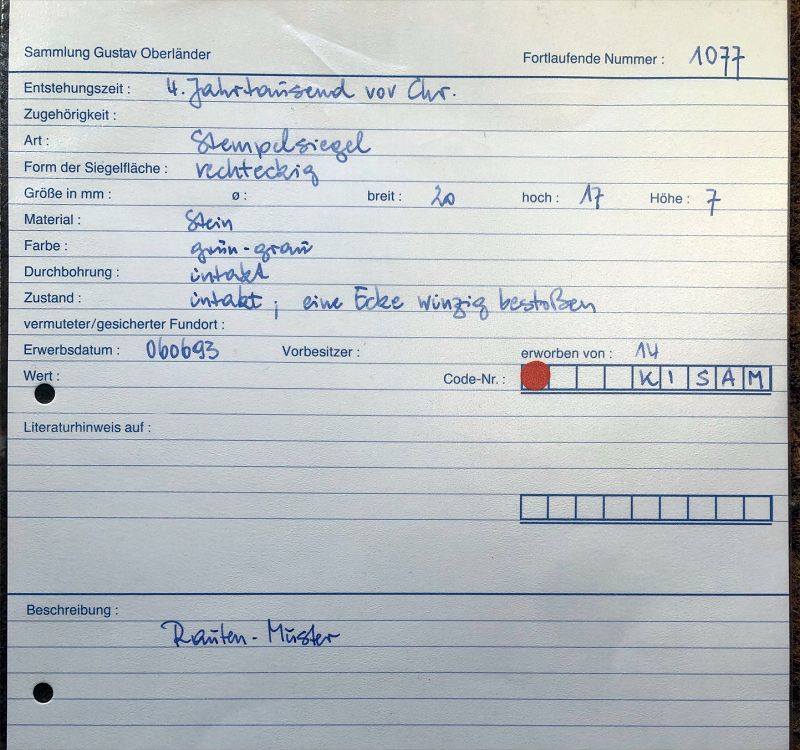 Sammlung Gustav Oberländer Fortlaufende Nummer : 1077
Entstehungszeit : 4. Jahrtausend vor Chr.
Zugehörigkeit :
Art : Stempelsiegel
Form der Siegelfläche : rechteckig
Größe in mm : ø : breit : 20 hoch : 17 Höhe : 7
Material : Stein
Farbe : grün-grau
Durchbohrung : intakt
Zustand : intakt ; eine Ecke winzig bestoßen
vermuteter/gesicherter Fundort :
Erwerbsdatum : 060693 Vorbesitzer : erworben von : 14
Wert : Code-Nr. : KISAM
Literaturhinweis auf :
Beschreibung :
Rauten-Muster